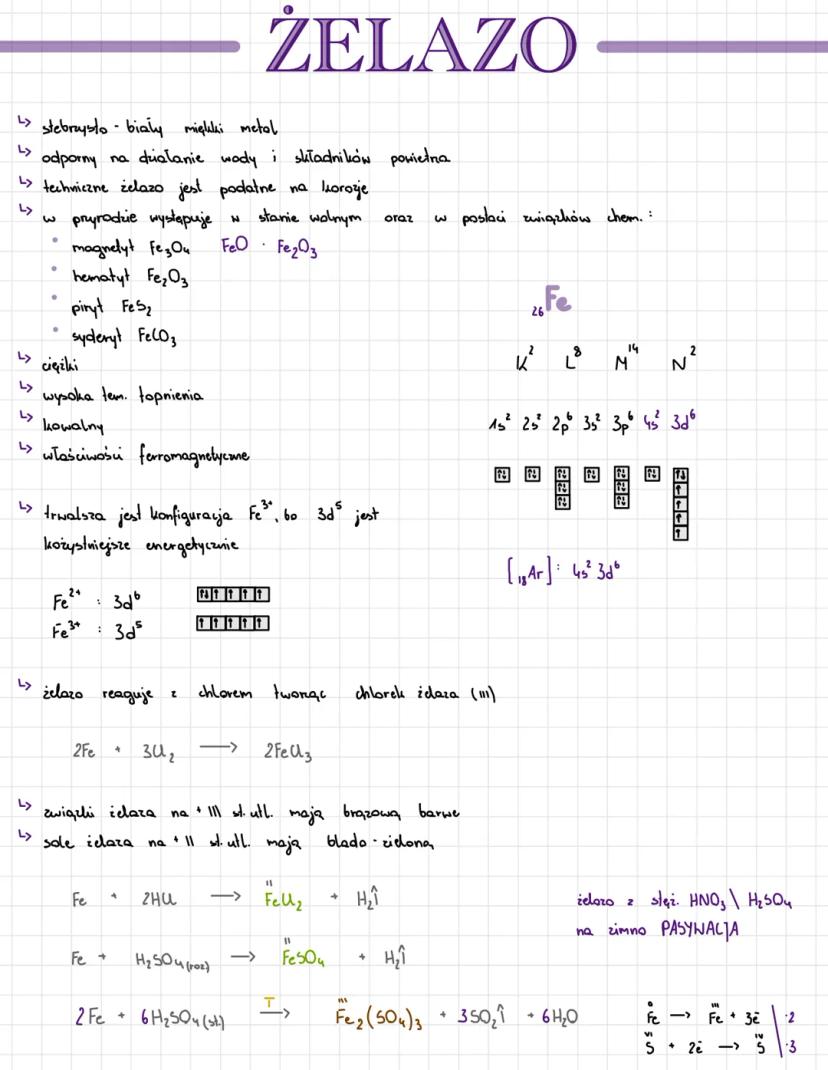 ŻELAZO
↳ srebrzysto - biały miękki metal
↳ odporny na działanie wody i składników powietrza
↳ techniczne żelazo jest podatne na korozje
↳ w przyrodzie występuje w stanie wolnym oraz w postaci związków chem. :
• magnetyt Fe₃O₄ FeO · Fe₂O₃
• hematyt Fe₂O₃
• piryt FeS₂
• syderyt FeCO₃
↳ ciężki
↳ wysoka tem. topnienia
↳ kowalny
↳ właściwości ferromagnetyczne
₂₆Fe
K² L⁸ M¹⁴ N²
1s² 2s² 2p⁶ 3s² 3p⁶ 4s² 3d⁶
[₁₈Ar] : 4s² 3d⁶
↳ trwalsza jest konfiguracja Fe³⁺, bo 3d⁵ jest
kożystniejsze energetycznie
Fe²⁺ : 3d⁶
Fe³⁺ : 3d⁵
↳ żelazo reaguje z chlorem tworząc chlorek żelaza (III)
2Fe + 3Cl₂ → 2FeCl₃
↳ związki żelaza na + III st. utl. mają brązową barwe
↳ sole żelaza na + II st. utl. mają blado - zieloną
Fe + 2HCl → FeCl₂ (II) + H₂↑
Fe + H₂SO₄(roz) → FeSO₄ (II) + H₂↑
2Fe + 6H₂SO₄(st.) T→ Fe₂(SO₄)₃ (III) + 3SO₂↑ + 6H₂O
żelazo z stęż. HNO₃ \ H₂SO₄
na zimno PASYWACJA
Fe⁰ → Feᴵᴵᴵ + 3e⁻ | ·2
Sⱽᴵ + 2e⁻ → Sᴵⱽ | ·3